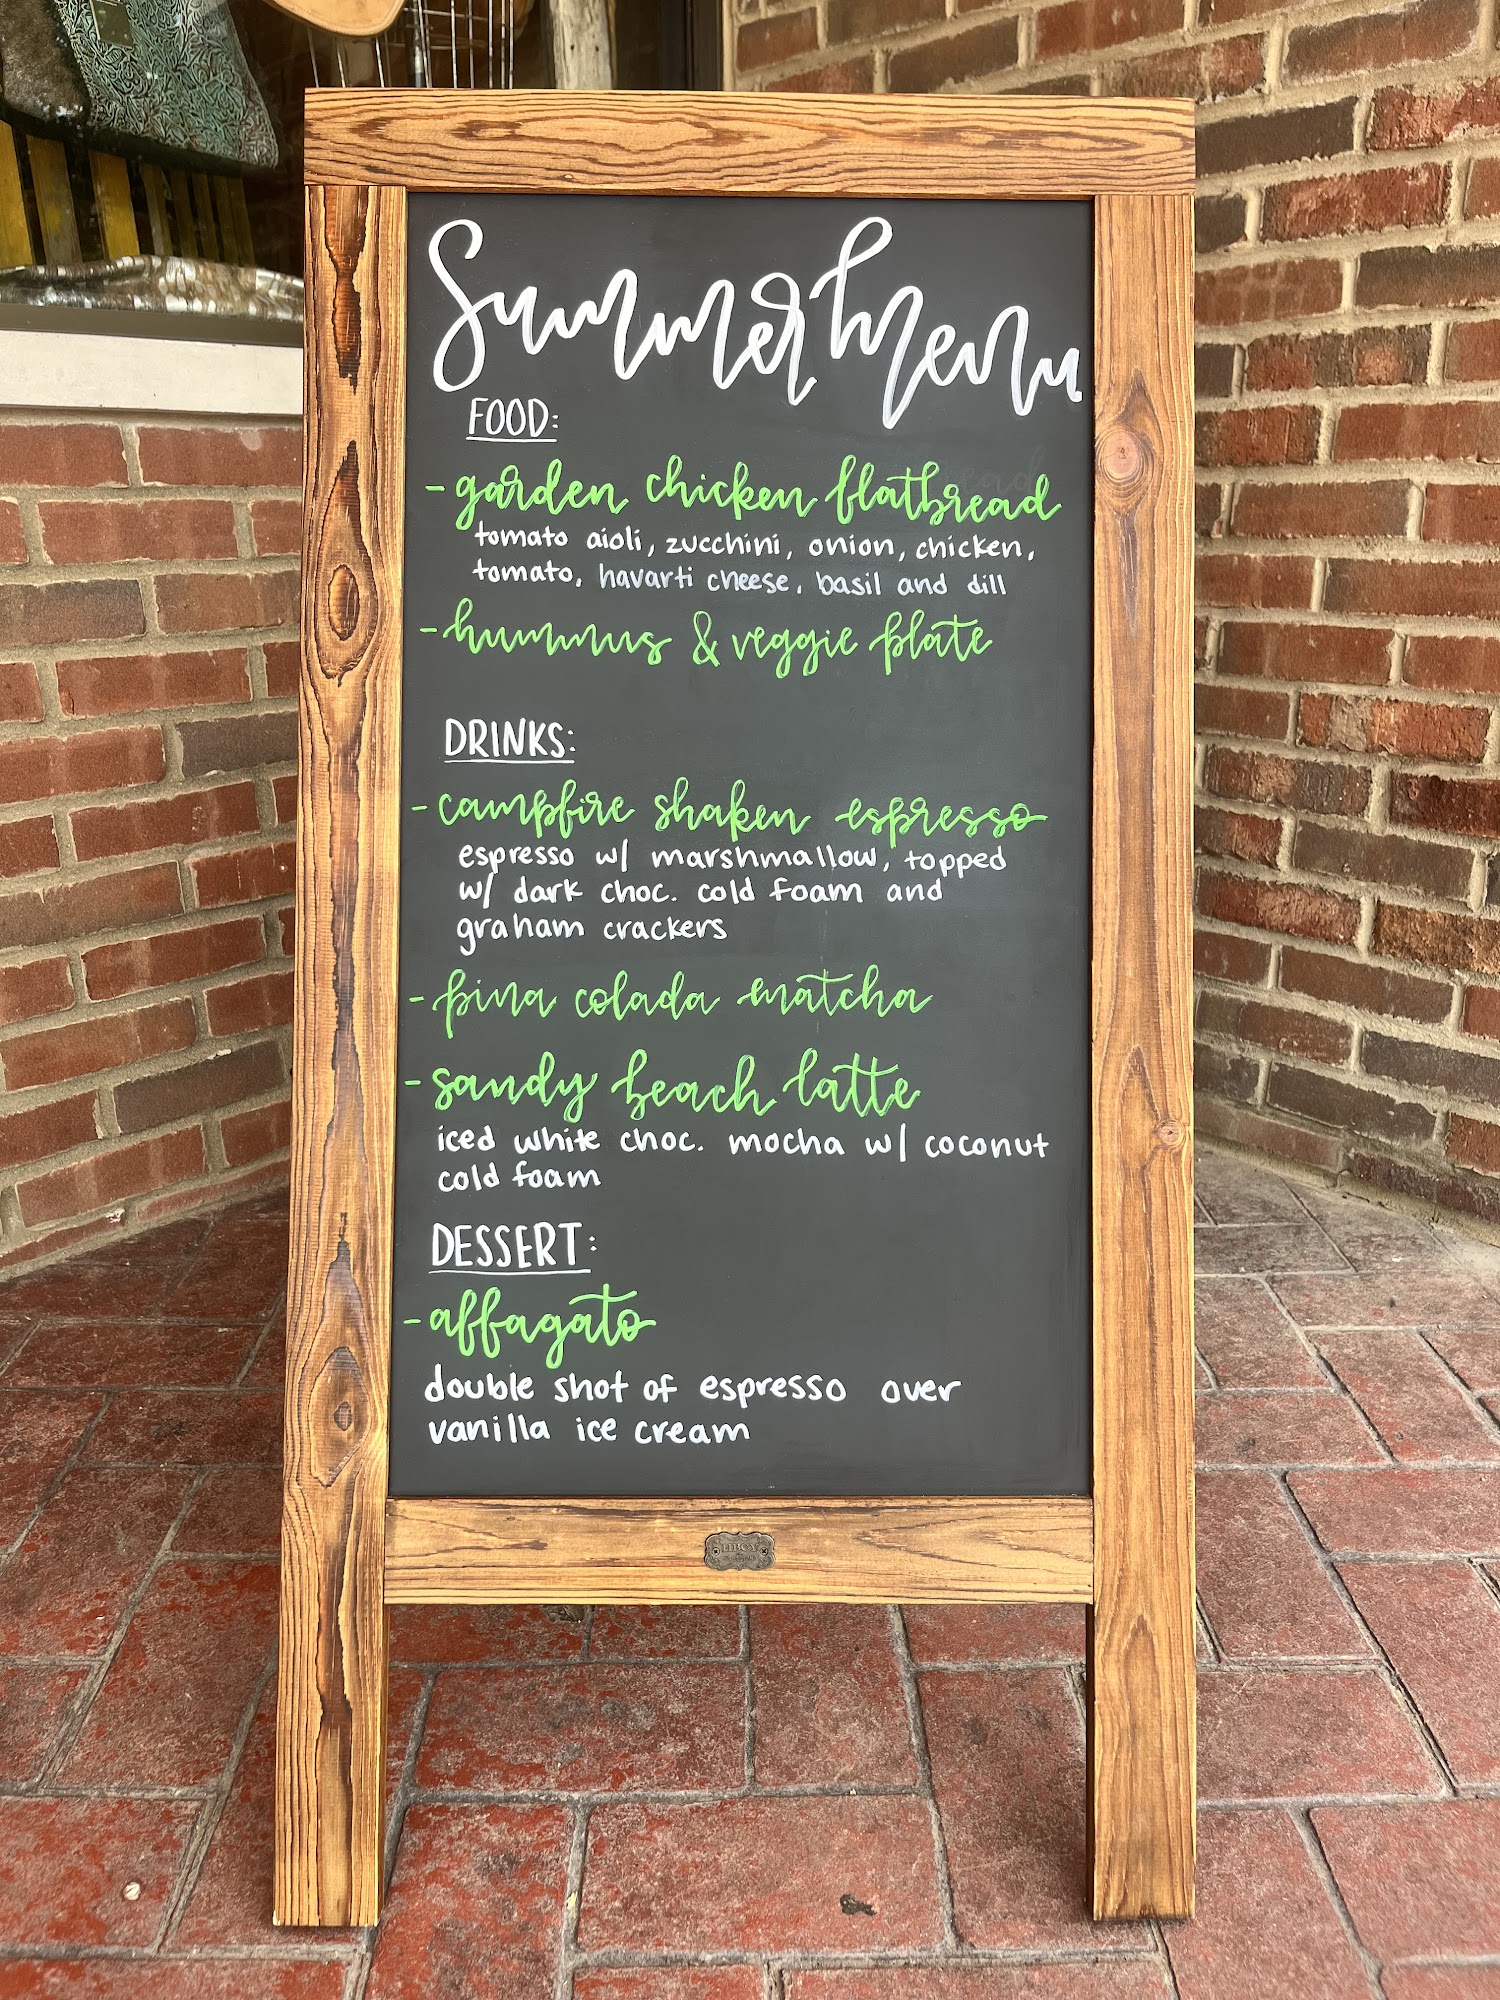 Summer Menu
FOOD:
- garden chicken flatbread
tomato aioli, zucchini, onion, chicken,
tomato, havarti cheese, basil and dill
- hummus & veggie plate
DRINKS:
- campfire shaken espresso
espresso w/ marshmallow, topped
w/ dark choc. cold foam and
graham crackers
- pina colada matcha
- sandy beach latte
iced white choc. mocha w/ coconut
cold foam
DESSERT:
- affagato
double shot of espresso over
vanilla ice cream